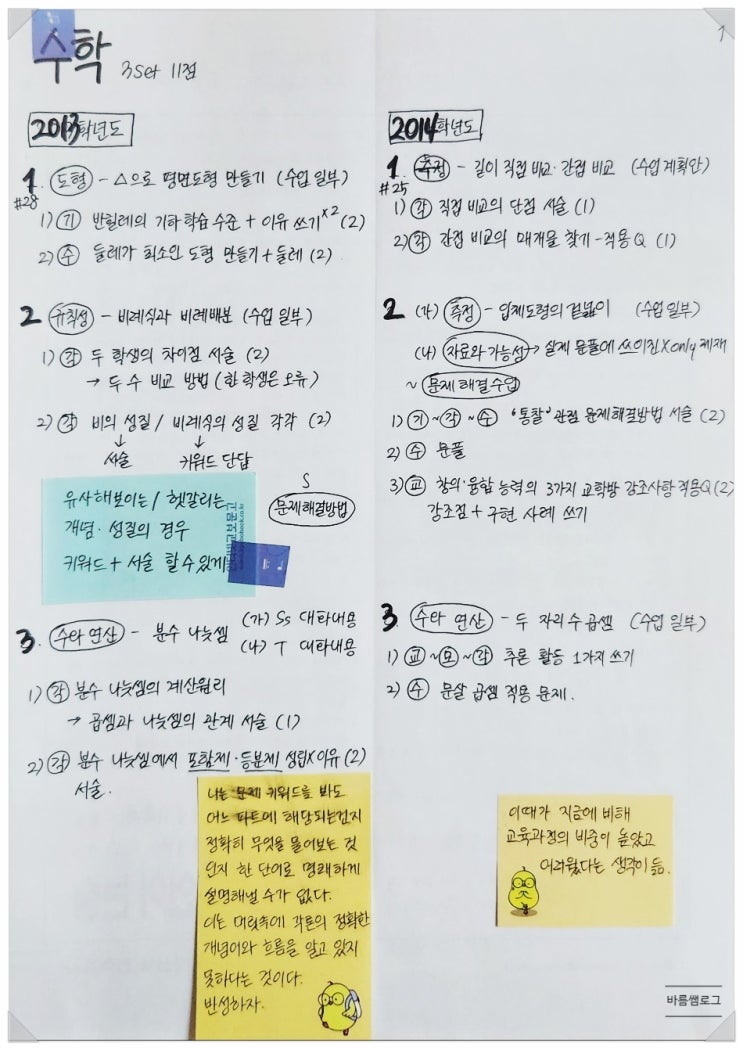 수학 3set 11점
1
2013학년도
1. 도형 - △으로 평면도형 만들기 (수업 일부)
#28
1) 기 반힐레의 기하학습 수준 + 이유 쓰기 ×2 (2)
2) 수 둘레가 최소인 도형 만들기 + 둘레 (2)
2 규칙성 - 비례식과 비례배분 (수업 일부)
1) 각 두 학생의 차이점 서술 (2)
→ 두 수 비교 방법 (한 학생은 오류)
2) 각 비의 성질 / 비례식의 성질 각각 (2)
↓ ↓
서술 키워드 단답
유사해보이는 / 헷갈리는
개념·성질의 경우
키워드 + 서술 할 수 있게
S
문제해결방법
3. 수와 연산 - 분수 나눗셈 (가) Ss 대화내용
(나) T 대화내용
1) 각 분수 나눗셈의 계산원리
→ 곱셈과 나눗셈의 관계 서술 (1)
2) 각 분수 나눗셈에서 포함제·등분제 성립X이유 (2)
서술.
나는 문제 키워드를 봐도
어느 파트에 해당되는건지
정확히 무엇을 물어보는 것
인지 한 단어로 명쾌하게
설명해낼 수가 없다.
이는 머릿속에 각론의 정확한
개념어와 흐름을 알고 있지
못하다는 것이다.
반성하자.
2014학년도
1. 측정 - 길이 직접 비교·간접 비교 (수업 계획안)
#25
1) 각 직접 비교의 단점 서술 (1)
2) 각 간접 비교의 매개물 찾기 - 적용Q (1)
2 (가) 측정 - 입체도형의 겉넓이 (수업 일부)
(나) 자료와 가능성 → 실제 문풀에 쓰이진X only 제재
~ 문제해결수업
1) 기~각~수 '통찰' 관점 문제해결방법 서술 (2)
2) 수 문풀
3) 교 창의·융합 능력의 3가지 교학방 강조사항 적용Q (2)
강조점 + 구현 사례 쓰기
3 수와 연산 - 두 자리 수 곱셈 (수업 일부)
1) 교~모~각 추론 활동 1가지 쓰기
2) 수 문살 곱셈 적용 문제.
이때가 지금에 비해
교육과정의 비중이 높았고
어려웠다는 생각이 듦.
바름쌤로그